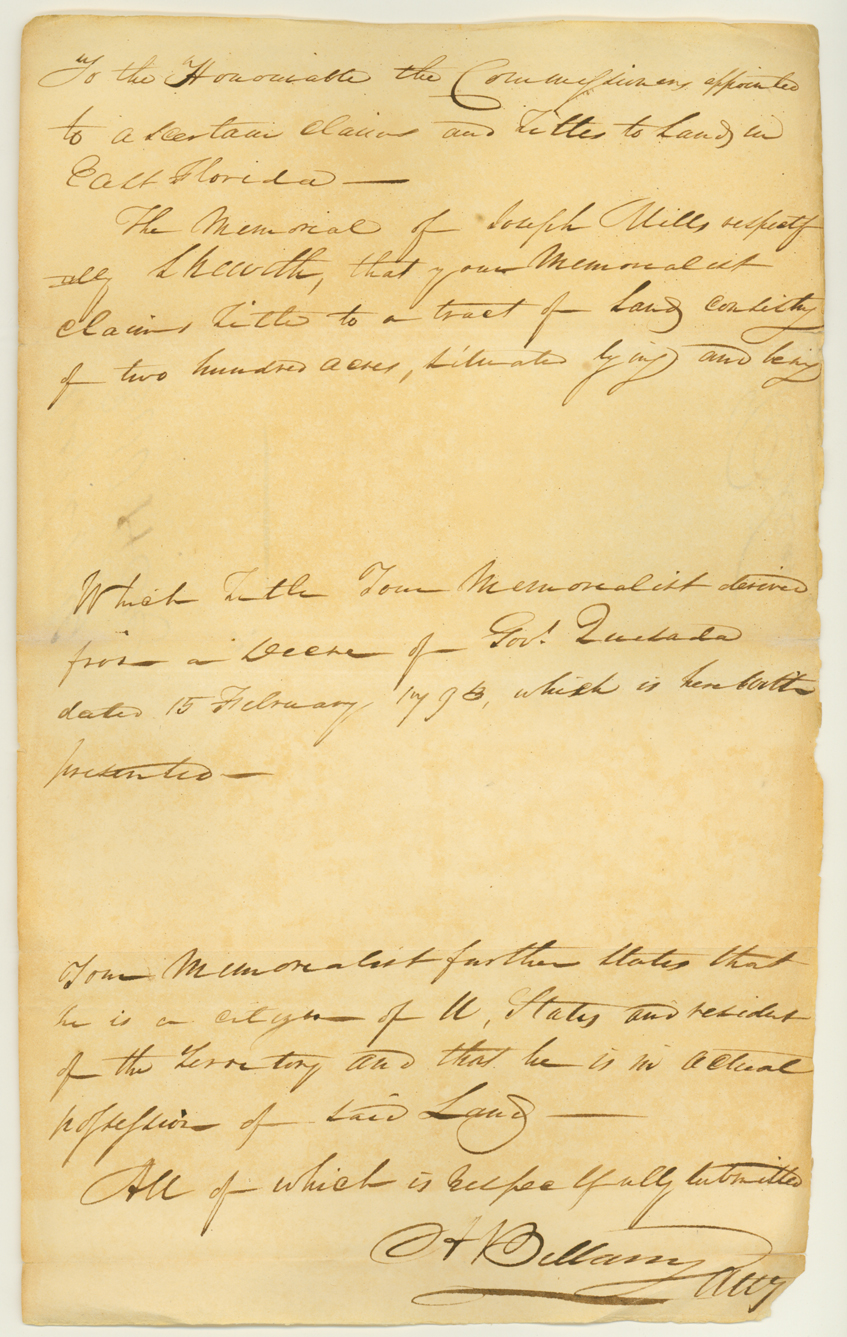 To the Honourable the Commissioners appointed
to ascertain claims and Titles to Lands in
East Florida —
The Memorial of Joseph Mills respectf
ully Sheweth, that your Memorialist
claims Title to a tract of Land consisting
of two hundred acres, Situated lying and being
Which Title Your Memorialist derived
from a Decree of Govr. Quesada
dated 15 February 1793, which is herewith
presented —
Your Memorialist further States that
he is a citizen of U, States and resident
of the Territory and that he is in actual
possession of said Land —
All of which is respectfully submitted
A Bellamy
Atty